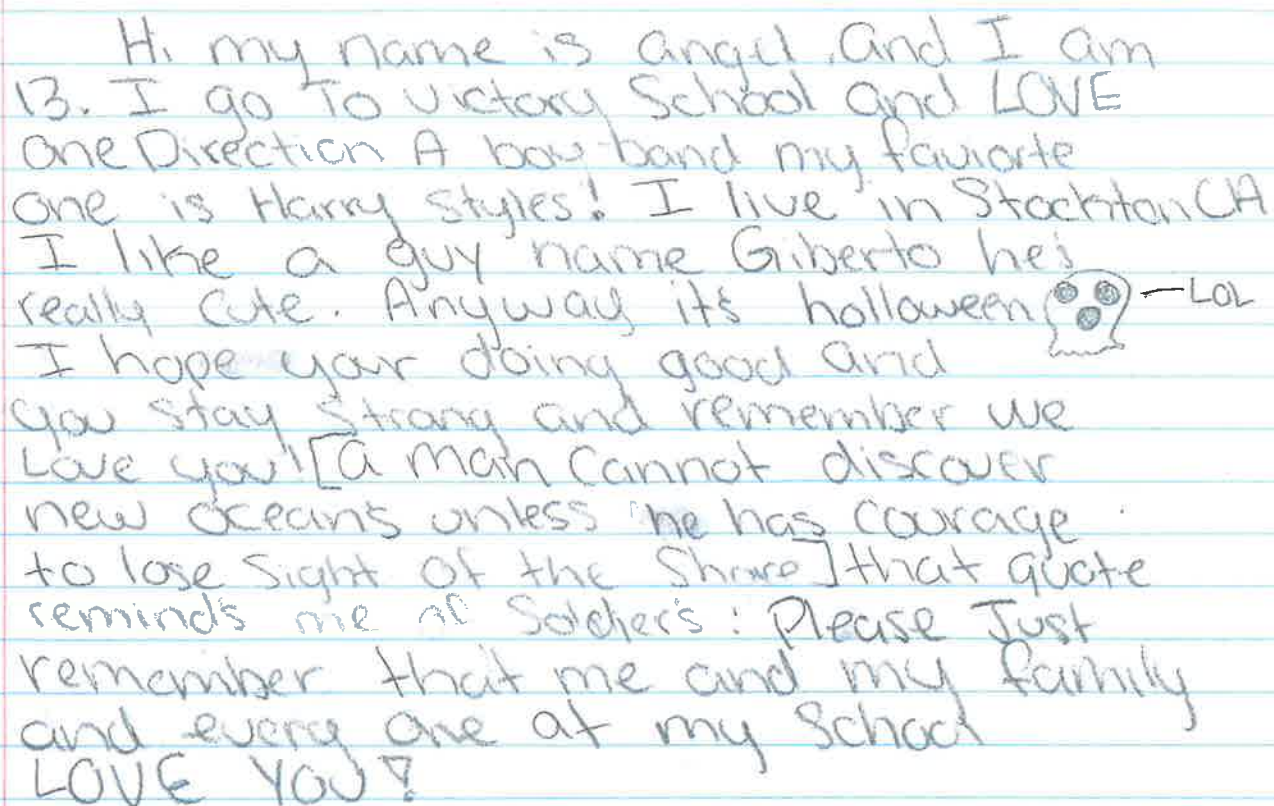 Hi my name is angel. and I am
13. I go To victory School and LOVE
one Direction A boy band my faviorte
one is Harry styles! I live in Stockton CA
I like a guy name Giberto he's
really cute. Anyway it's holloween
LOL
I hope your doing good and
you stay strong and remember we
Love you! [a man cannot discover
new oceans unless he has courage
to lose sight of the Shore] that quote
reminds me of Solders: Please Just
remember that me and my family
and every one at my School
LOVE YOU!